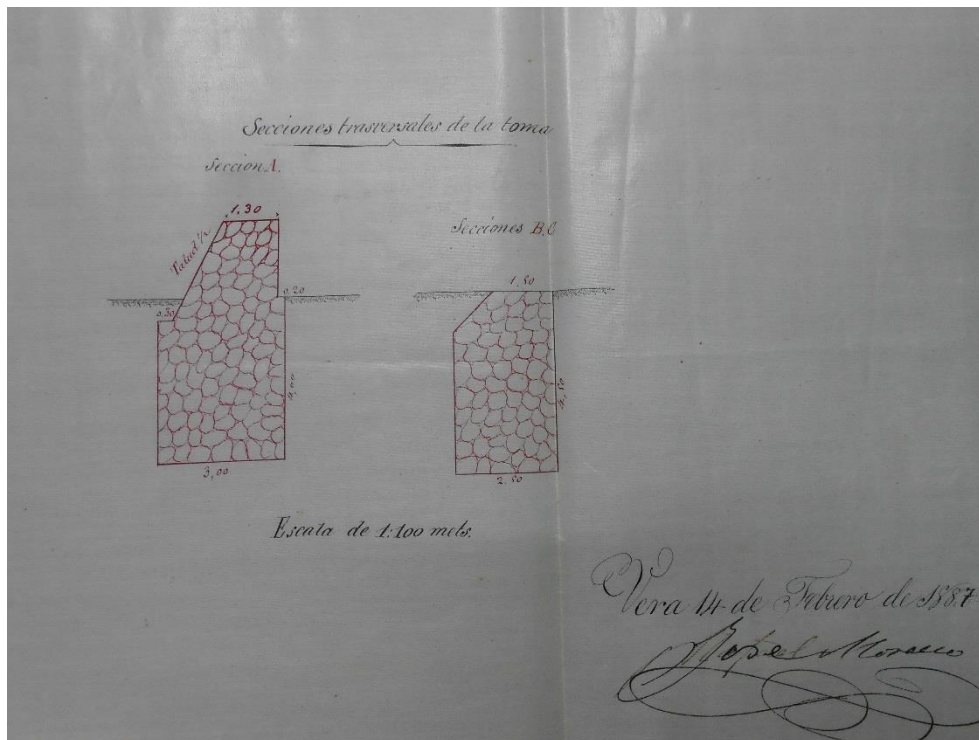 Secciones trasversales de la toma
Sección A.
1,30
Talud ½
0,20
0,50
4,00
3,00
Secciones B.C
1,50
4,50
2,50
Escala de 1:100 mets.
Vera 14 de Febrero de 1887